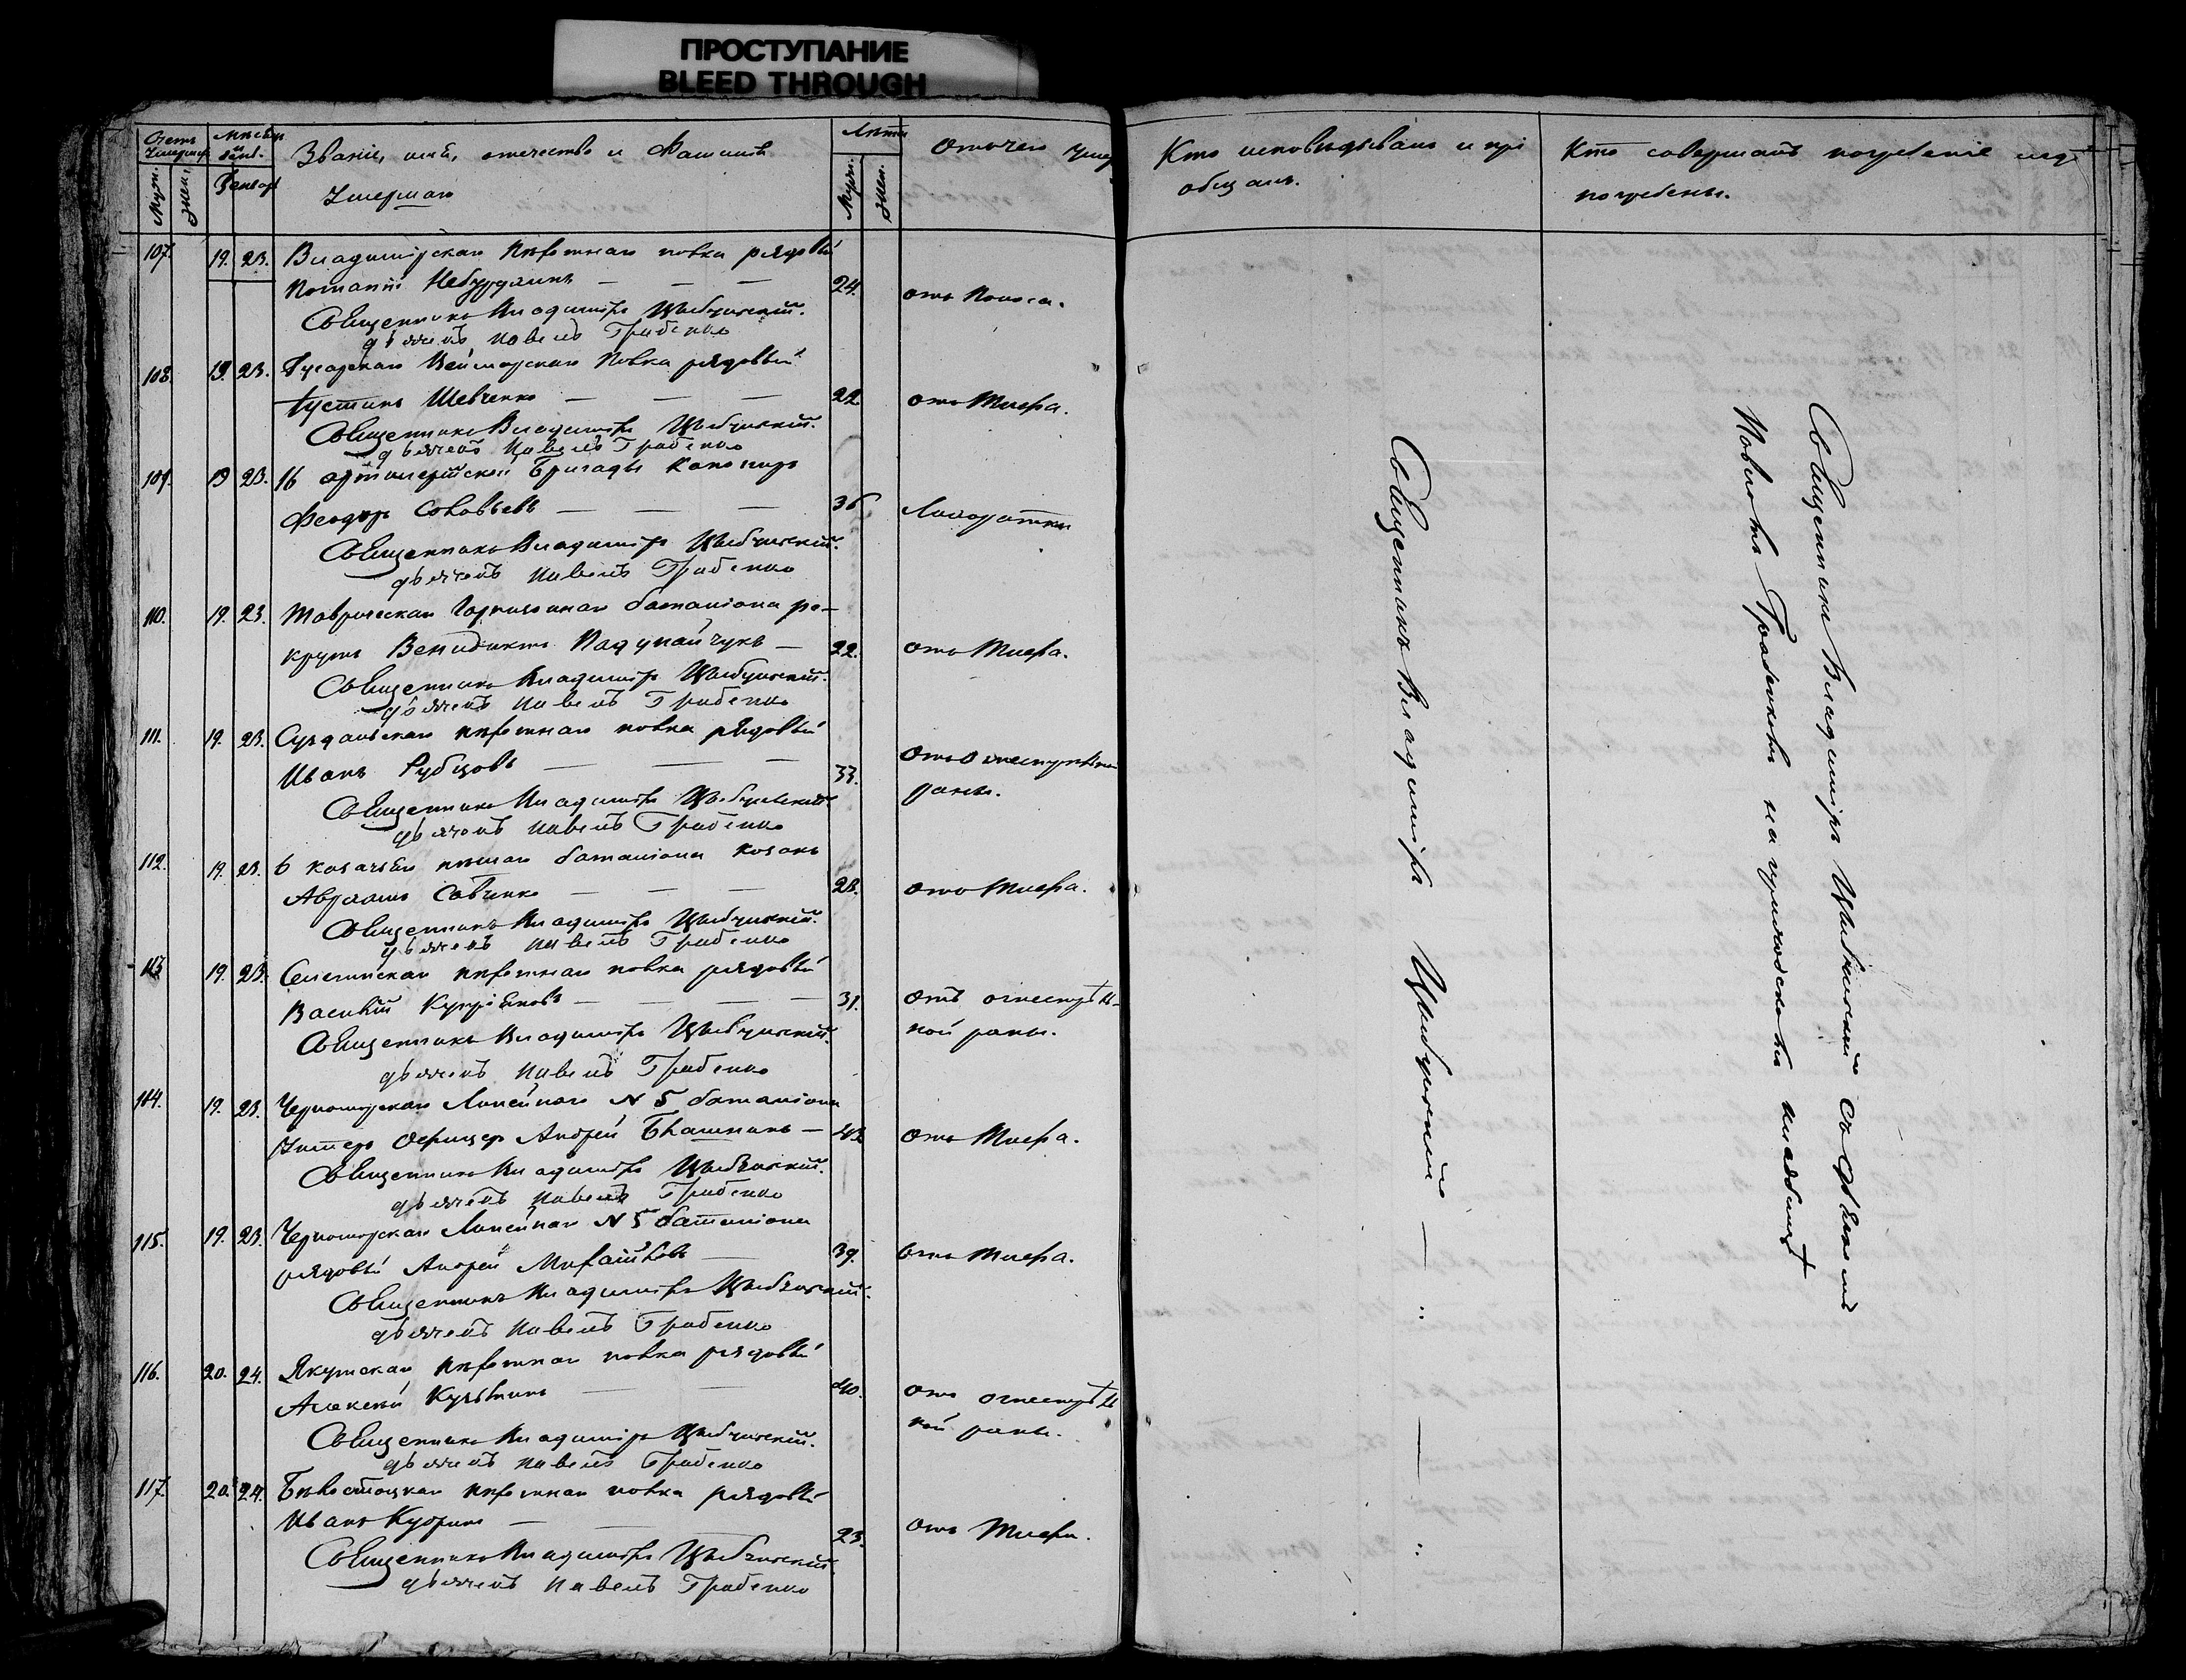 ПРОСТУПАНИЕ
BLEED THROUGH
Счетъ Умерш.
Мѣсяцъ и день.
Званіе, имя, отечество и Фамилія
Умершаго
Лѣта
Отъ чего Умеръ
Муж.
Жен.
Генварь
Муж.
Жен.
Кто исповѣдывалъ и прі
общалъ.
Кто совершалъ погребеніе и гдѣ
погребены.
107. 19. 23. Владимірскаго Пѣхотнаго полка рядовый
Потапій 24. отъ Поноса.
Священникъ Владиміръ Цыбчинскій.
дьячекъ Павелъ Грабенко
108. 19. 23. Гусарскаго Веймарскаго Полка рядовый
Іустинъ Шевченко 22. отъ Тифа.
Священникъ Владиміръ Цыбчинскій.
дьячекъ Павелъ Грабенко
109. 19 23. 16 артилерійской Бригады Канониръ
Феодоръ Соловьевъ 36 Лихорадки
Священникъ Владиміръ Цыбчинскій.
дьячекъ Павелъ Грабенко
110. 19. 23. Таврическаго Гарнизоннаго баталіона ре-
крутъ Венидиктъ 22. отъ Тифа.
Священникъ Владиміръ Цыбчинскій.
дьячекъ Павелъ Грабенко
111. 19. 23. Суздальскаго пѣхотнаго полка рядовый
Иванъ Рубцовъ 33. Отъ огнестрѣльн
раны.
Священникъ Владиміръ Цыбчинскій
дьячекъ Павелъ Грабенко
112. 19. 23. 6 козачьяго пѣшаго баталіона козакъ
Авраамъ Савченко 28. отъ Тифа.
Священникъ Владиміръ Цыбчинскій.
дьячекъ Павелъ Грабенко
113 19. 23. Селегинскаго пѣхотнаго полка рядовый
Василій 31. отъ огнестрѣль-
ной раны.
Священникъ Владиміръ Цыбчинскій.
дьячекъ Павелъ Грабенко
114. 19. 23. Черноморскаго Линейнаго N 5 баталіона
Унтеръ Офицеръ Андрей 43 отъ Тифа.
Священникъ Владиміръ Цыбчинскій.
дьячекъ Павелъ Грабенко
115. 19. 23. Черноморскаго Линейнаго N 5 баталіона
рядовый Андрей Михайловъ 39. отъ Тифа.
Священникъ Владиміръ Цыбчинскій.
дьячекъ Павелъ Грабенко
116. 20. 24. Якутскаго пѣхотнаго полка рядовый
Алексѣй Кузьминъ 40. отъ огнестрѣль
ной раны.
Священникъ Владиміръ Цыбчинскій.
дьячекъ Павелъ Грабенко
117. 20. 24. Бѣлостоцкаго пѣхотнаго полка рядовый
Иванъ Купринъ 23. отъ Тифа.
Священникъ Владиміръ Цыбчинскій.
дьячекъ Павелъ Грабенко
Священникъ Владиміръ Цыбчинскій
Священникъ Владиміръ Цыбчинскій съ дьячкомъ
Павломъ Грабенкомъ на кладбищѣ